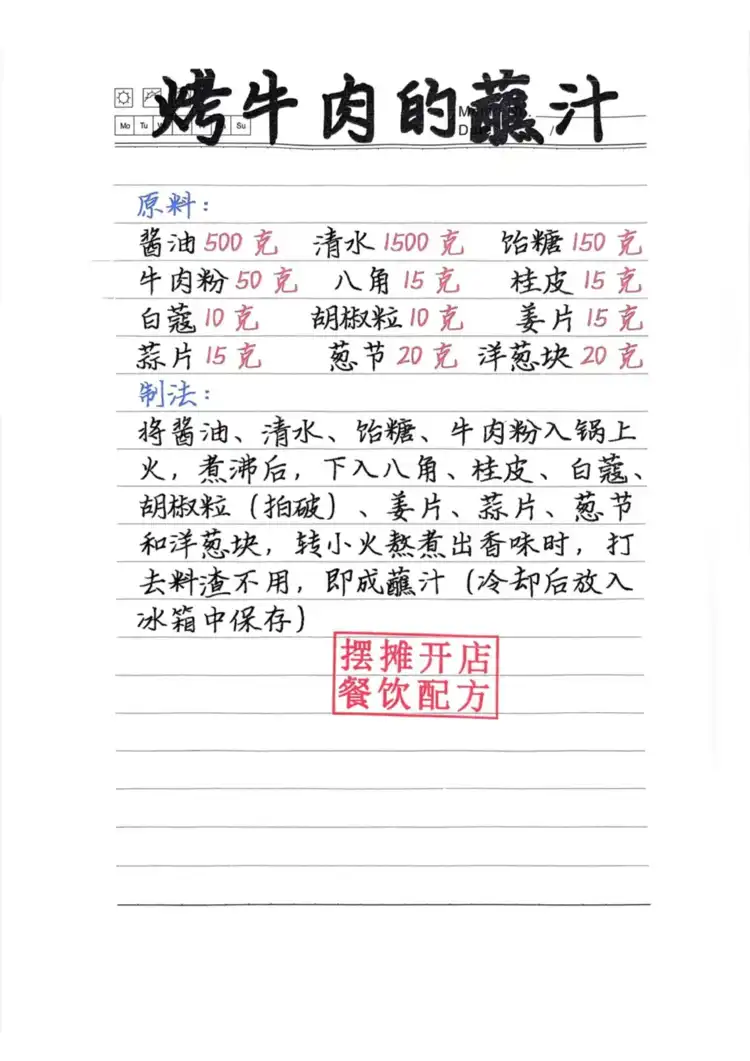 烤牛肉的蘸汁
Mo Tu Su
原料：
酱油 500 克 清水 1500 克 饴糖 150 克
牛肉粉 50 克 八角 15 克 桂皮 15 克
白蔻 10 克 胡椒粒 10 克 姜片 15 克
蒜片 15 克 葱节 20 克 洋葱块 20 克
制法：
将酱油、清水、饴糖、牛肉粉入锅上
火，煮沸后，下入八角、桂皮、白蔻、
胡椒粒（拍破）、姜片、蒜片、葱节
和洋葱块，转小火熬煮出香味时，打
去料渣不用，即成蘸汁（冷却后放入
冰箱中保存）
摆摊开店
餐饮配方